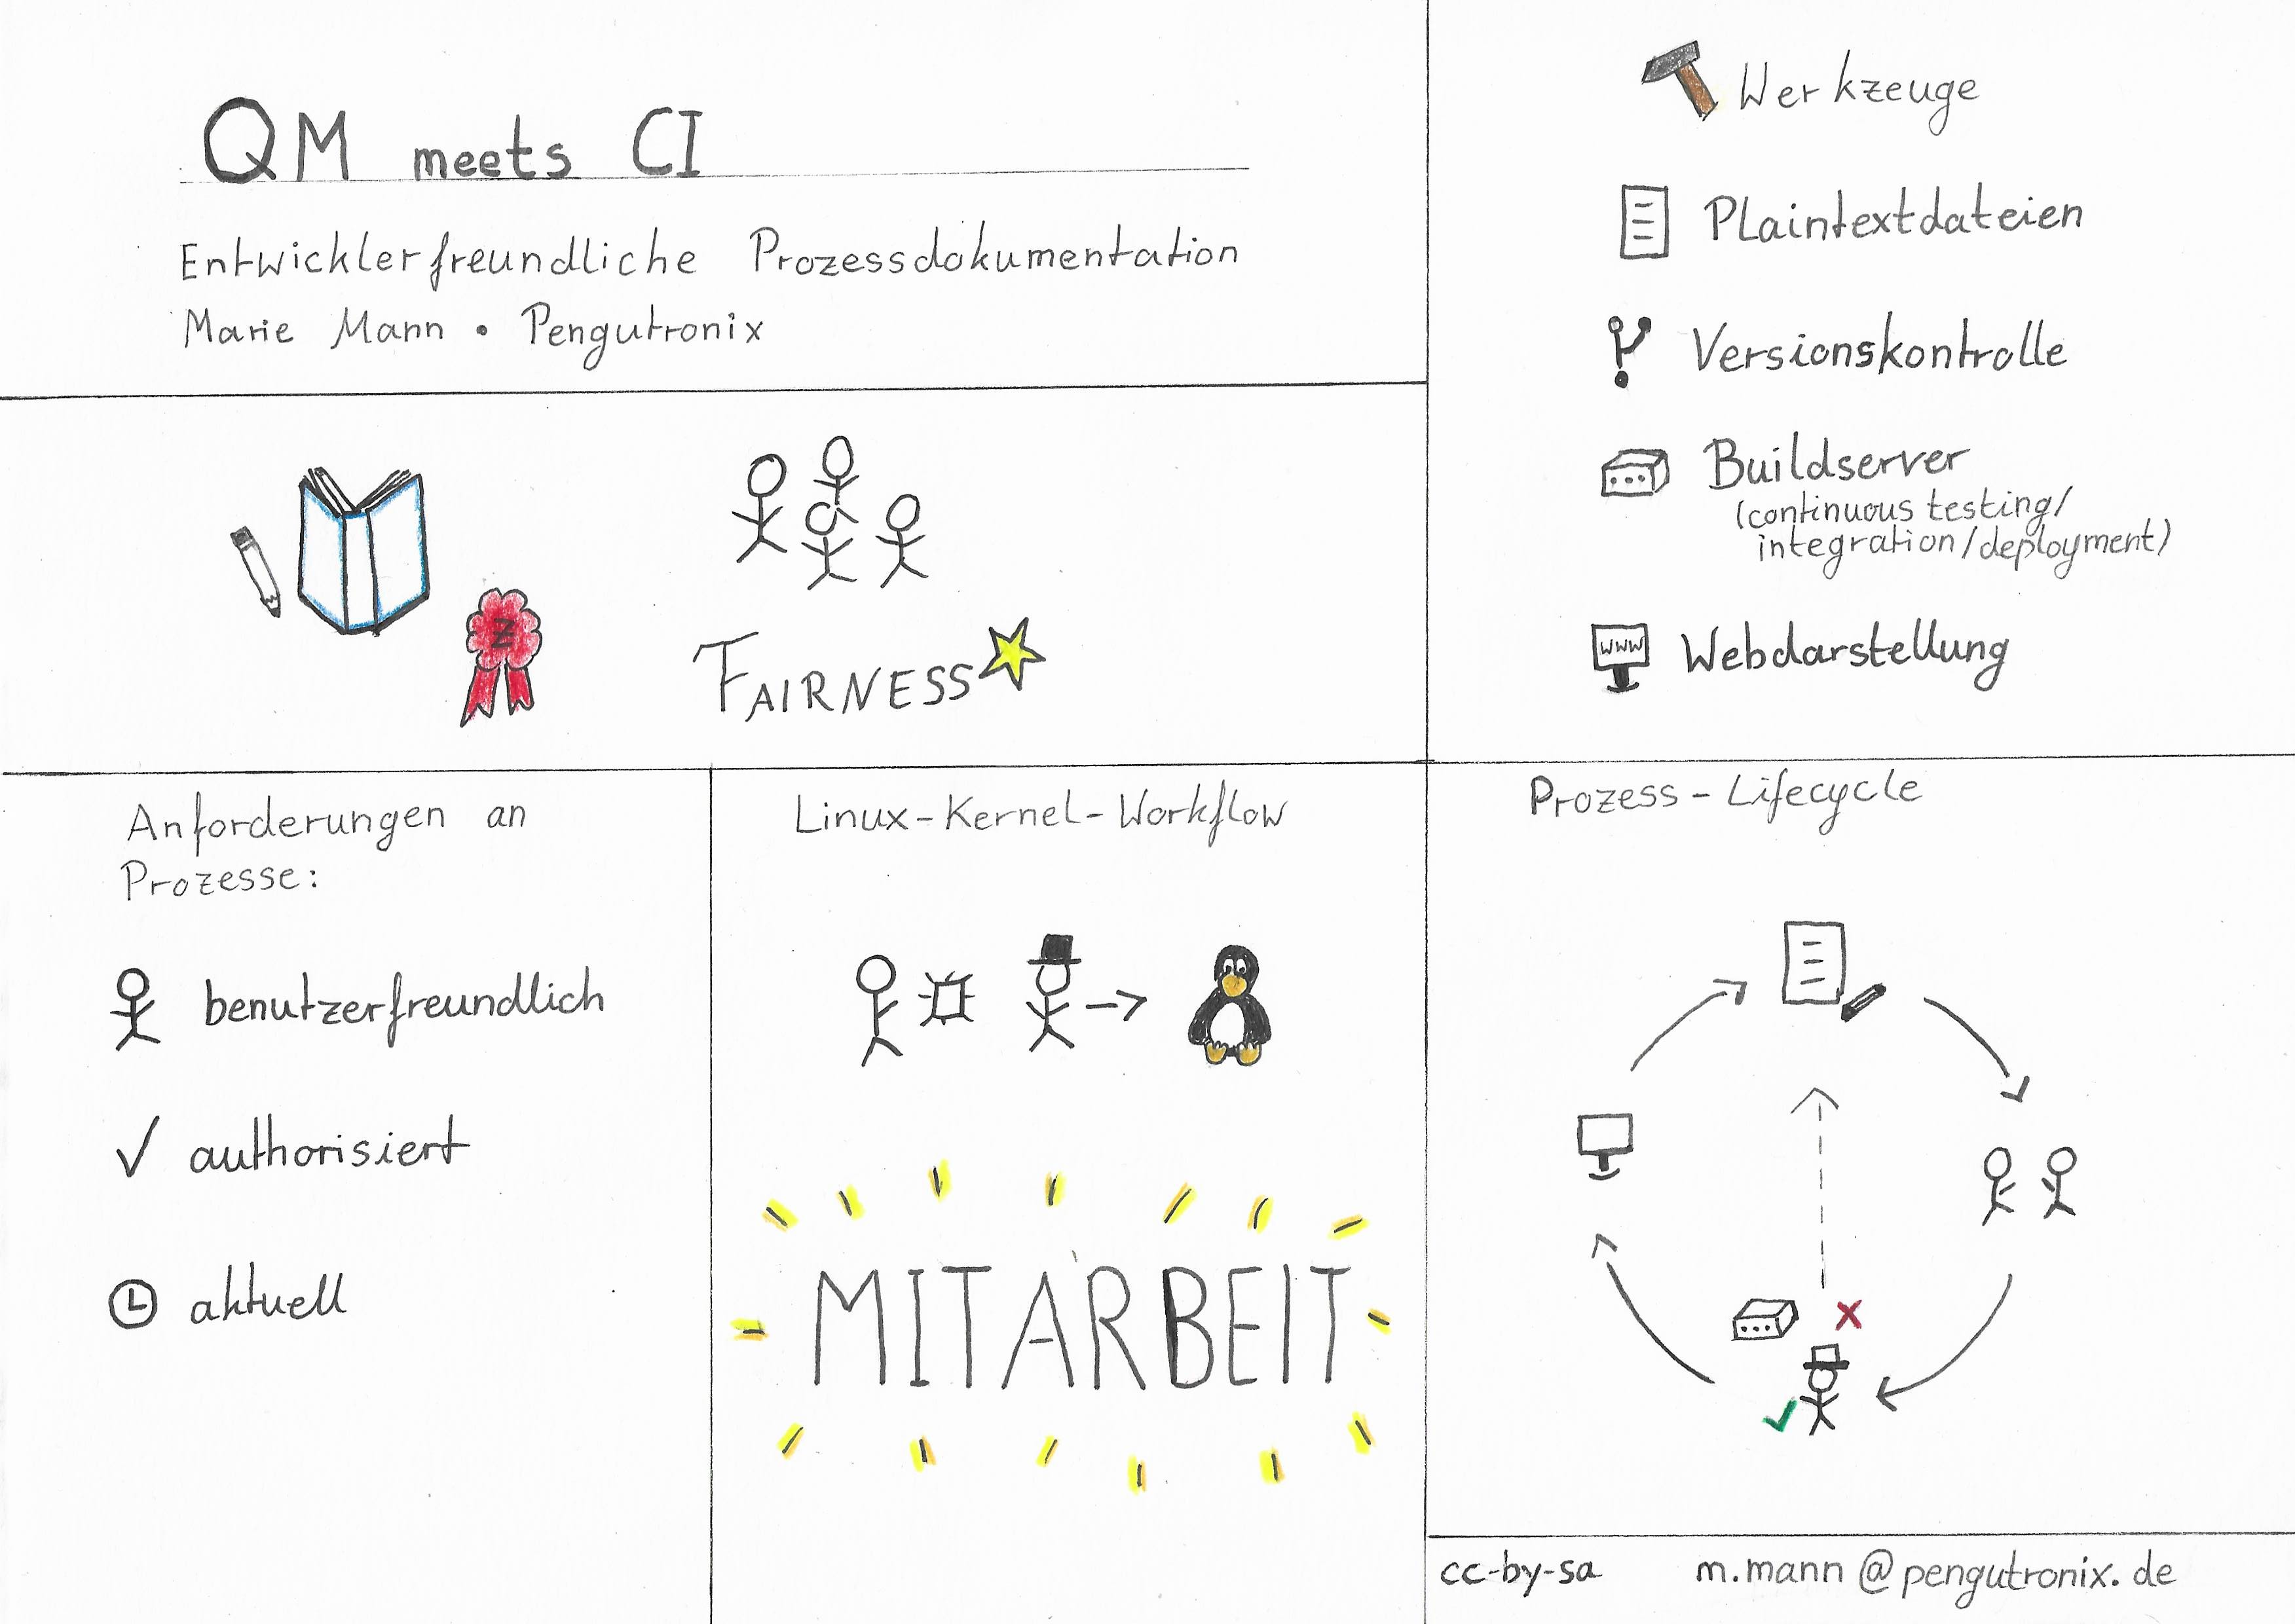 QM meets CI
Entwicklerfreundliche Prozessdokumentation
Marie Mann • Pengutronix
Z
FAIRNESS
Werkzeuge
Plaintextdateien
Versionskontrolle
Buildserver
(continuous testing/
integration/deployment)
WWW
Webdarstellung
Anforderungen an
Prozesse:
benutzerfreundlich
authorisiert
aktuell
Linux-Kernel-Workflow
MITARBEIT
Prozess-Lifecycle
cc-by-sa m.mann@pengutronix.de